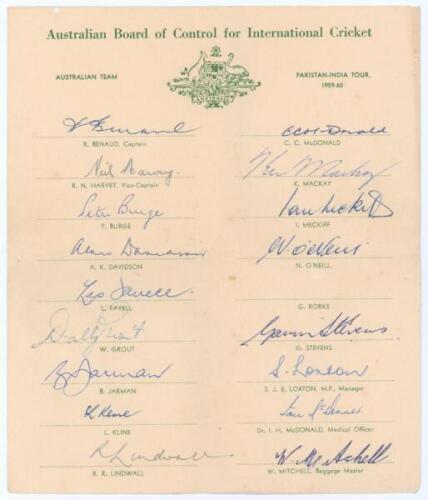 Australian Board of Control for International Cricket
AUSTRALIAN TEAM
PAKISTAN-INDIA TOUR,
1959-60
AUSTRALIA
R. BENAUD, Captain
C. C. McDONALD
Neil Harvey.
Ken Mackay
R. N. HARVEY, Vice-Captain
K. MACKAY
Peter Burge
Ian Meckiff
P. BURGE
I. MECKIFF
Alan Davidson
N. O'Neill
A. K. DAVIDSON
N. O'NEILL
Les Favell
L. FAVELL
G. RORKE
Wally Grout
Gavin Stevens
W. GROUT
G. STEVENS
B. Jarman
S. Loxton
B. JARMAN
S. J. E. LOXTON, M.P., Manager
L Kline
L. KLINE
Dr. I. H. McDONALD, Medical Officer
R Lindwall
R. R. LINDWALL
W. MITCHELL, Baggage Master